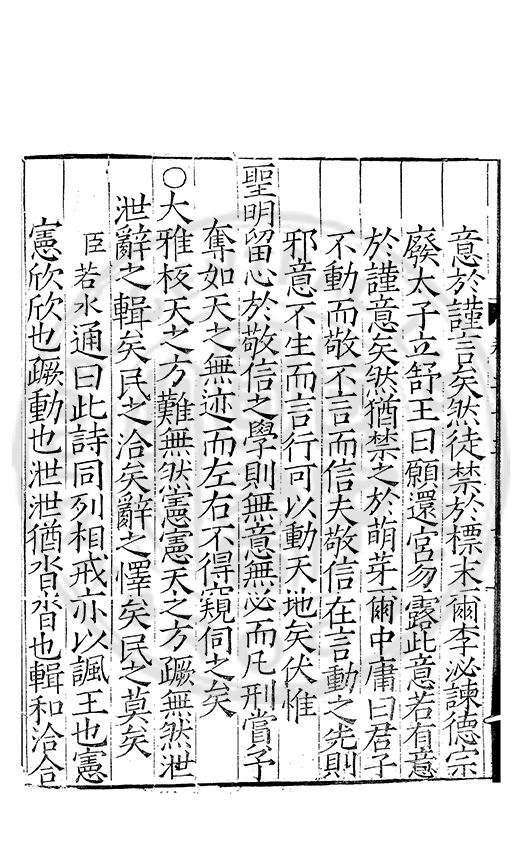 意於謹言矣然徒禁於標末爾李泌諫德宗
廢太子立舒王曰願還宮勿露此意若有意
於謹意矣然猶禁之於萌芽爾中庸曰君子
不動而敬不言而信夫敬信在言動之先則
邪意不生而言行可以動天地矣伏惟
聖明留心於敬信之學則無意無必而凡刑賞予
奪如天之無迹而左右不得窺伺之矣
○大雅板天之方難無然憲憲天之方蹶無然泄
泄辭之輯矣民之洽矣辭之懌矣民之莫矣
臣若水通曰此詩同列相戒亦以諷王也憲
憲欣欣也蹶動也泄泄猶沓沓也輯和洽合